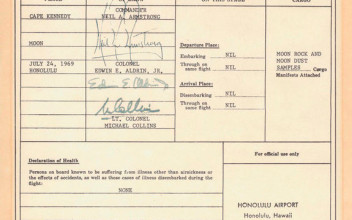 COMMANDER
CARGO
CAPE KENNEDY
NEIL A. ARMSTRONG
MOON
JULY 24, 1969
HONOLULU
COLONEL
EDWIN E. ALDRIN, JR.
LT. COLONEL
MICHAEL COLLINS
Departure Place:
Embarking NIL
Through on
same flight NIL
Arrival Place:
Disembarking NIL
Through on
same flight NIL
MOON ROCK AND
MOON DUST
SAMPLES Cargo
Manifests Attached
Declaration of Health
Persons on board known to be suffering from illness other than airsickness or
the effects of accidents, as well as those cases of illness disembarked during the
flight:
NONE
For official use only
HONOLULU AIRPORT
Honolulu, Hawaii